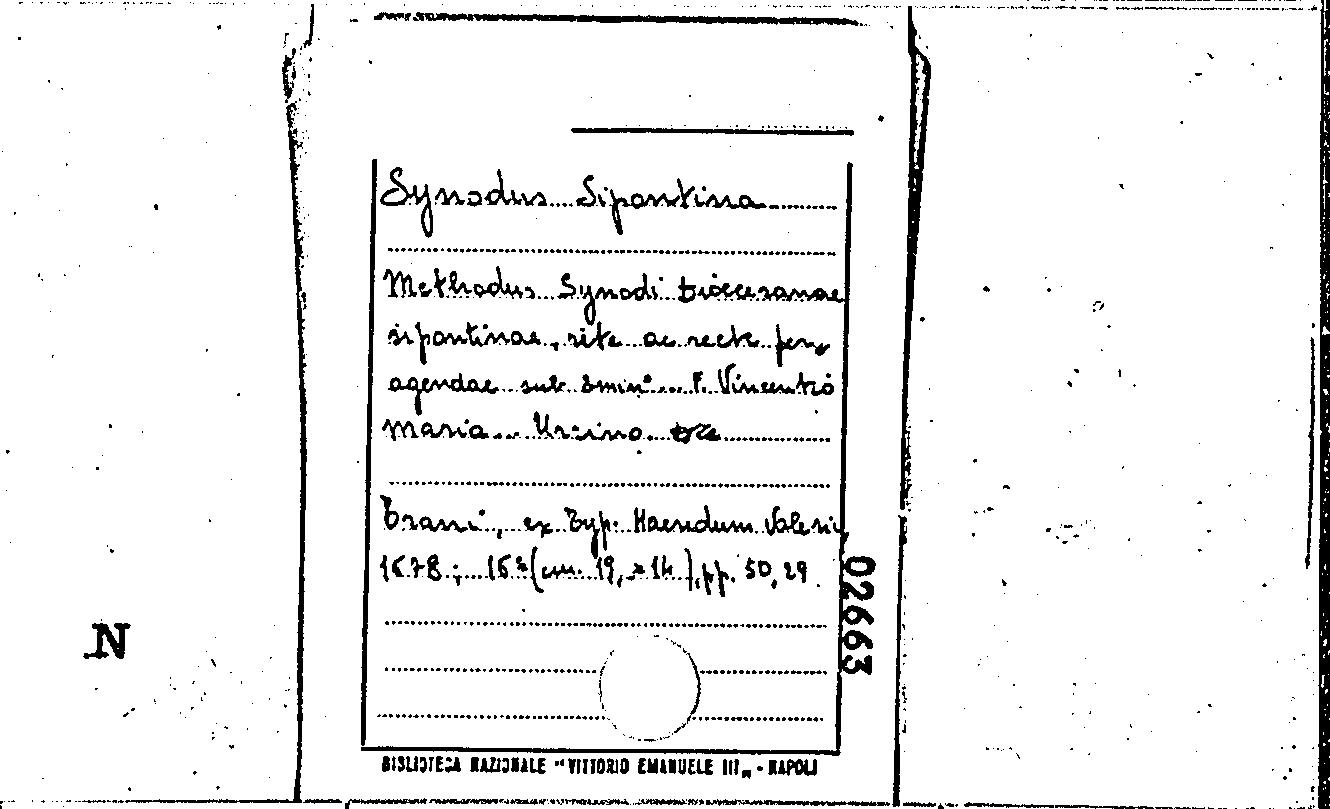 Synodus Sipontina
Methodus Synodi dioecesanae
sipontinae, rite ac recte per
agendae sub Emin° F. Vincentio
Maria Ursino
Trani, ex Typ. Haeredum Valerii,
1678; 16° (cm. 19, x 14), pp. 50, 29
02663
N
BIBLIOTECA NAZIONALE "VITTORIO EMANUELE III„ - NAPOLI